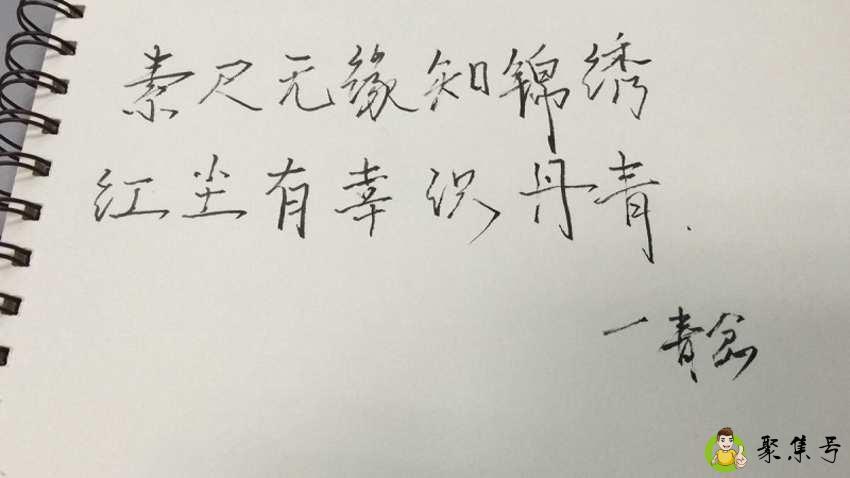 素尺无缘知锦绣
红尘有幸识丹青.
一青忽
聚集号